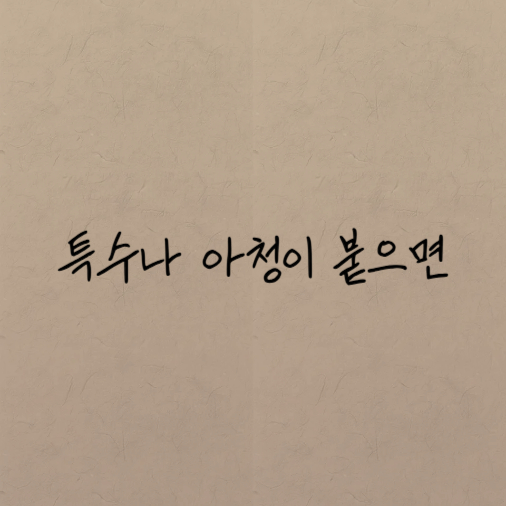 특수나 아청이 붙으면